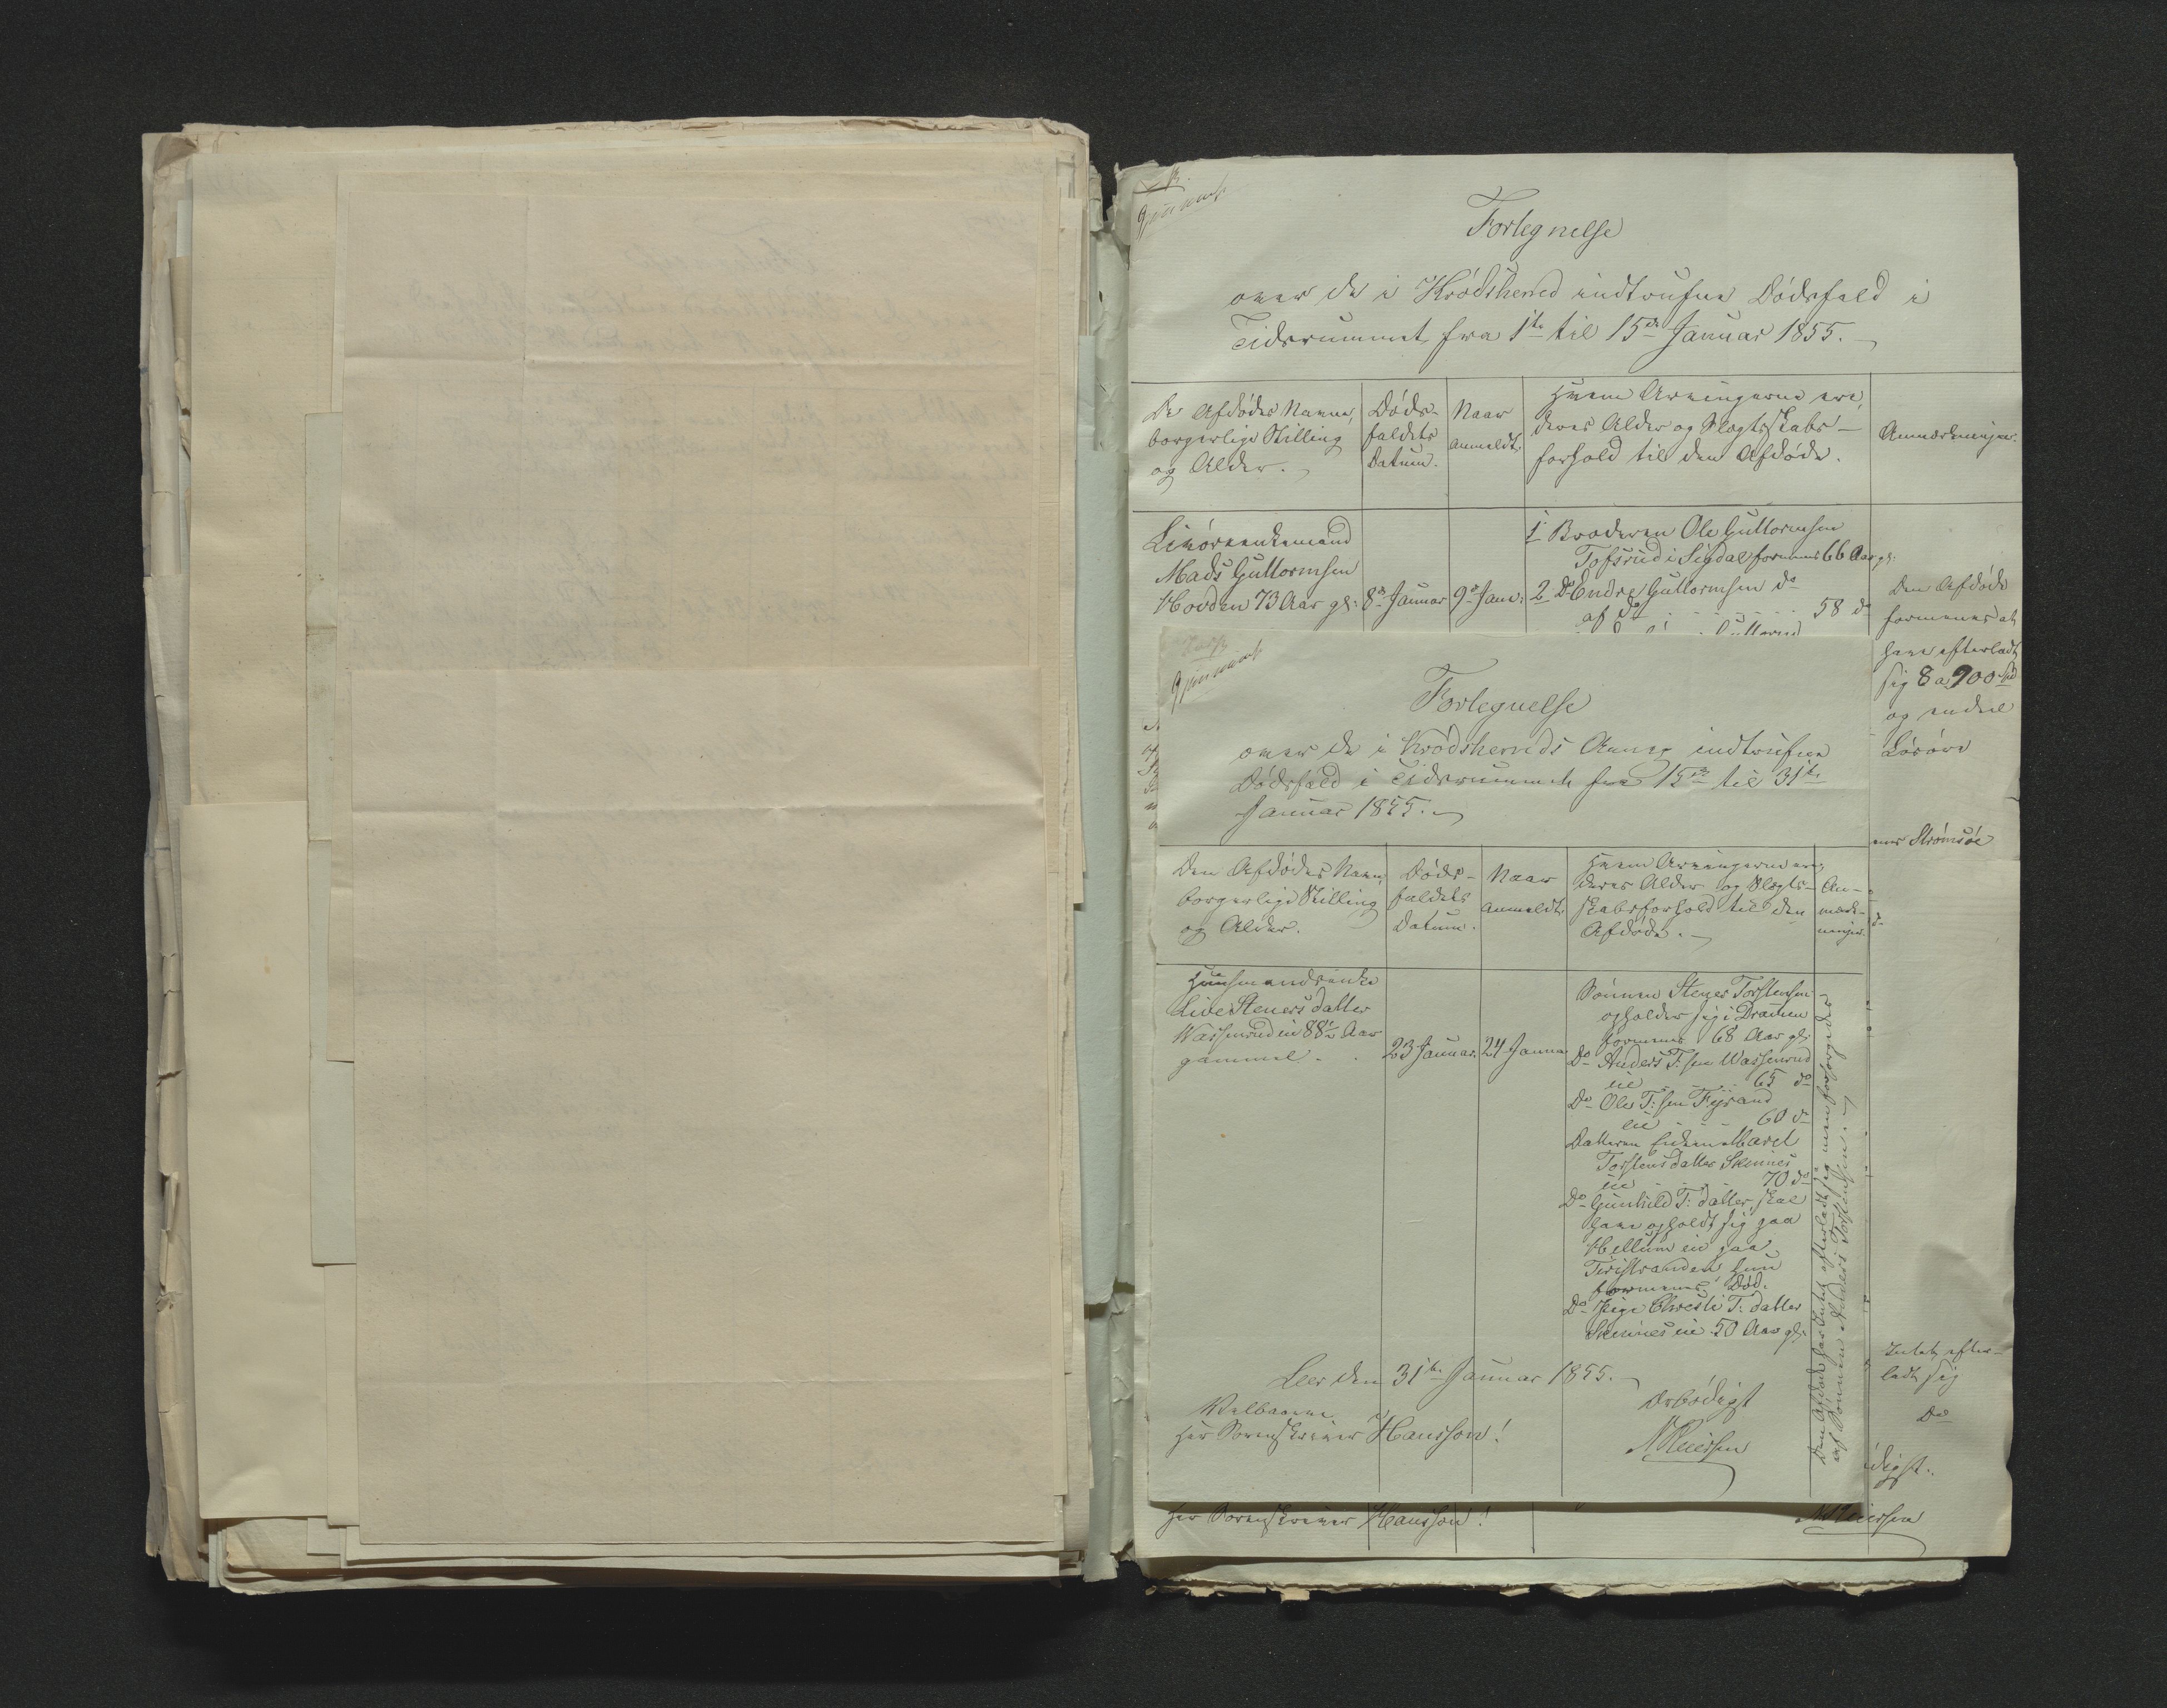 Fortegnelse
over de i Krødsherred indtrufne Dødsfald i
Tidsrummet fra 1te til 15de Januar 1855.
De Afdødes Navne,
borgerlige Stilling
og Alder.
Døds-
faldets
Datum.
Naar
anmeldt.
Hvem Arvingerne ere,
deres Alder og Slægtskabs-
forhold til den Afdøde.
Anmærkninger.
Mads Guttormsen
Hovden 73 Aar gl:
8de Januar
9de Janr:
1 Broderen Ole Guttormsen
Tofsrud i Sigdal formenes 66 Aar gl:
2 Do Endre Guttormsen do
af do 58 do
Den Afdøde
formenes at
have efterladt
sig 8 a 900 Spd
og endeel
Løsøre
Strømsøe
Fortegnelse
over de i Krødsherreds Annex indtrufne
Dødsfald i Tidsrummet fra 15de til 31te
Januar 1855.
Den Afdødes Navn,
borgerlige Stilling
og Alder.
Døds-
faldets
Datum.
Naar
anmeldt.
Hvem Arvingerne ere,
deres Alder og Slægt-
skabsforhold til den
Afdøde.
An-
mærk-
ninger.
Huusmandsenke
Live Stenersdatter
Wassenrudeie 88 1/2 Aar
gammel.
23 Januar.
24 Januar
Sønnen Stener Torstensen
opholder sig i Dramen
formenes 68 Aar gl:
Do Anders T:sen Wassenrud
eie 65 do
Do Ole T:sen Fyrand
eie 60 do
Datteren Enken Marel
Torstensdatter Skinnes
eie 70 do
Do Gunhild T:datter, skal
have opholdt sig paa
Hellum eie paa
Tyristranden, hun
formenes Død.
Do Pige Chresti T:datter
Skinnes eie 50 Aar gl:
Den Afdøde har Intet efterladt sig men forsørgedes
af Sønnen Anders Torstensen.
Leer den 31te Januar 1855.
Ærbødigst
Velbaarne
Hr Sorenskriver Hansson!
N Reiersen
Intet efter-
ladt sig
Do
ødigst.
Hr Sorenskriver Hansson!
N Reiersen